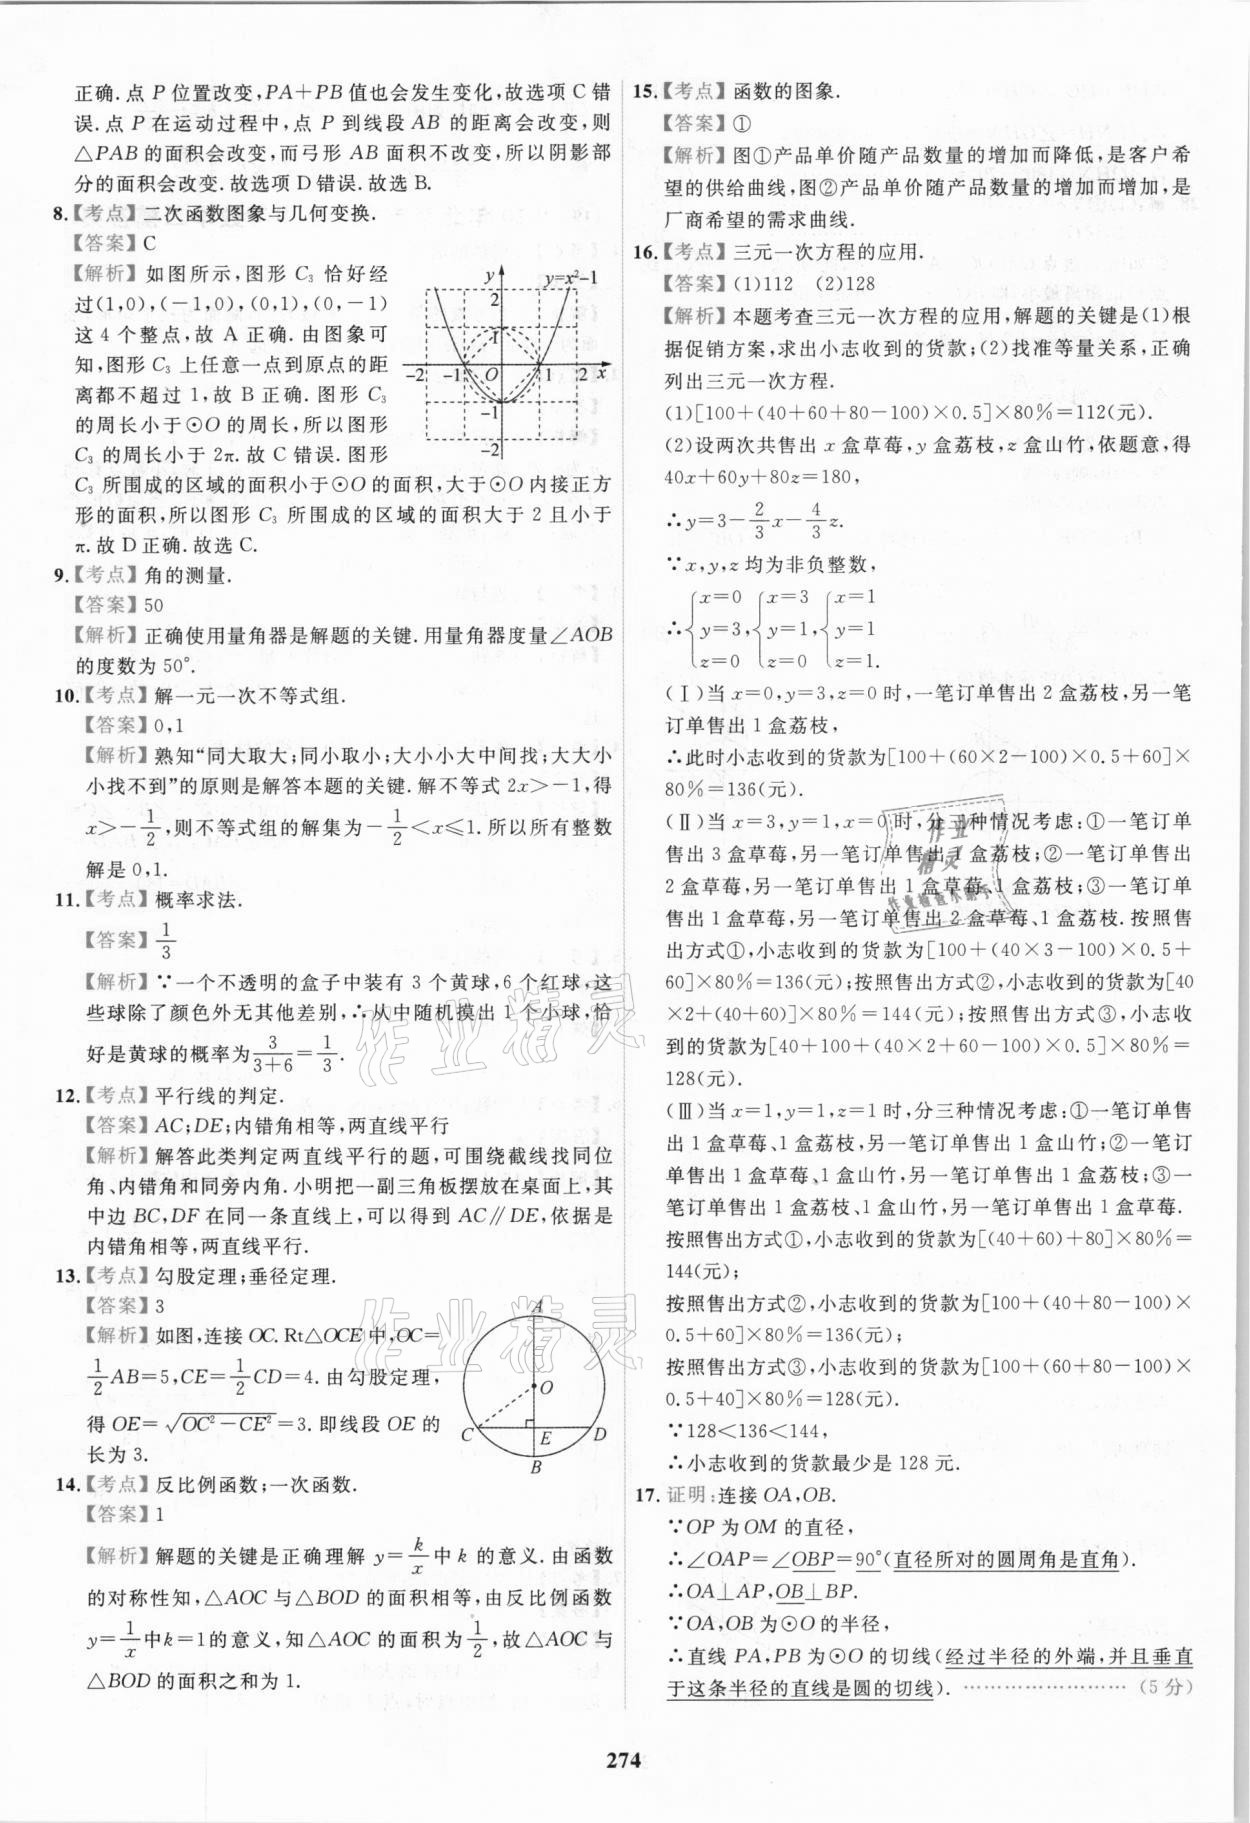 正确.点 P 位置改变,PA+PB 值也会发生变化,故选项 C 错
误.点 P 在运动过程中,点 P 到线段 AB 的距离会改变,则
△PAB 的面积会改变,而弓形 AB 面积不改变,所以阴影部
分的面积会改变.故选项 D 错误.故选 B.
8.【考点】二次函数图象与几何变换.
【答案】C
【解析】如图所示,图形 C₃ 恰好经
过(1,0),(-1,0),(0,1),(0,-1)
这 4 个整点,故 A 正确.由图象可
知,图形 C₃ 上任意一点到原点的距
离都不超过 1,故 B 正确.图形 C₃
的周长小于⊙O 的周长,所以图形
C₃ 的周长小于 2π.故 C 错误.图形
C₃ 所围成的区域的面积小于⊙O 的面积,大于⊙O 内接正方
形的面积,所以图形 C₃ 所围成的区域的面积大于 2 且小于
π.故 D 正确.故选 C.
y
y=x²-1
2
1
-2 -1 O 1 2 x
-1
-2
9.【考点】角的测量.
【答案】50
【解析】正确使用量角器是解题的关键.用量角器度量∠AOB
的度数为 50°.
10.【考点】解一元一次不等式组.
【答案】0,1
【解析】熟知“同大取大;同小取小;大小小大中间找;大大小
小找不到”的原则是解答本题的关键.解不等式 2x>-1,得
x>-1/2,则不等式组的解集为-1/2<x≤1.所以所有整数
解是 0,1.
11.【考点】概率求法.
【答案】1/3
【解析】∵一个不透明的盒子中装有 3 个黄球,6 个红球,这
些球除了颜色外无其他差别,∴从中随机摸出 1 个小球,恰
好是黄球的概率为3/(3+6)=1/3.
12.【考点】平行线的判定.
【答案】AC;DE;内错角相等,两直线平行
【解析】解答此类判定两直线平行的题,可围绕截线找同位
角、内错角和同旁内角.小明把一副三角板摆放在桌面上,其
中边 BC,DF 在同一条直线上,可以得到 AC∥DE,依据是
内错角相等,两直线平行.
13.【考点】勾股定理;垂径定理.
【答案】3
【解析】如图,连接 OC.Rt△OCE 中,OC=
1/2AB=5,CE=1/2CD=4.由勾股定理,
得 OE=√(OC²-CE²)=3.即线段 OE 的
长为 3.
A
O
C E D
B
14.【考点】反比例函数;一次函数.
【答案】1
【解析】解题的关键是正确理解 y=k/x中 k 的意义.由函数
的对称性知,△AOC 与△BOD 的面积相等,由反比例函数
y=1/x中k=1的意义,知△AOC 的面积为1/2,故△AOC 与
△BOD 的面积之和为 1.
15.【考点】函数的图象.
【答案】①
【解析】图①产品单价随产品数量的增加而降低,是客户希
望的供给曲线,图②产品单价随产品数量的增加而增加,是
厂商希望的需求曲线.
16.【考点】三元一次方程的应用.
【答案】(1)112 (2)128
【解析】本题考查三元一次方程的应用,解题的关键是(1)根
据促销方案,求出小志收到的货款;(2)找准等量关系,正确
列出三元一次方程.
(1)[100+(40+60+80-100)×0.5]×80%=112(元).
(2)设两次共售出 x 盒草莓,y 盒荔枝,z 盒山竹,依题意,得
40x+60y+80z=180,
∴y=3-2/3x-4/3z.
∵x,y,z 均为非负整数,
∴{x=0 {x=3 {x=1
y=3, y=1, y=1
z=0 z=0 z=1.
(Ⅰ)当 x=0,y=3,z=0 时,一笔订单售出 2 盒荔枝,另一笔
订单售出 1 盒荔枝,
∴此时小志收到的货款为[100+(60×2-100)×0.5+60]×
80%=136(元).
(Ⅱ)当 x=3,y=1,x=0时,分三种情况考虑:①一笔订单
售出 3 盒草莓,另一笔订单售出 1 盒荔枝;②一笔订单售出
2 盒草莓,另一笔订单售出 1 盒草莓、1 盒荔枝;③一笔订单
售出 1 盒草莓,另一笔订单售出 2 盒草莓、1 盒荔枝.按照售
出方式①,小志收到的货款为[100+(40×3-100)×0.5+
60]×80%=136(元);按照售出方式②,小志收到的货款为[40
×2+(40+60)]×80%=144(元);按照售出方式③,小志收
到的货款为[40+100+(40×2+60-100)×0.5]×80%=
128(元).
(Ⅲ)当 x=1,y=1,z=1 时,分三种情况考虑:①一笔订单售
出 1 盒草莓、1 盒荔枝,另一笔订单售出 1 盒山竹;②一笔订
单售出 1 盒草莓、1 盒山竹,另一笔订单售出 1 盒荔枝;③一
笔订单售出 1 盒荔枝、1 盒山竹,另一笔订单售出 1 盒草莓.
按照售出方式①,小志收到的货款为[(40+60)+80]×80%=
144(元);
按照售出方式②,小志收到的货款为[100+(40+80-100)×
0.5+60]×80%=136(元);
按照售出方式③,小志收到的货款为[100+(60+80-100)×
0.5+40]×80%=128(元).
∵128<136<144,
∴小志收到的货款最少是 128 元.
17.证明:连接 OA,OB.
∵OP 为 OM 的直径,
∴∠OAP=∠OBP=90°(直径所对的圆周角是直角).
∴OA⊥AP,OB⊥BP.
∵OA,OB 为⊙O 的半径,
∴直线 PA,PB 为⊙O 的切线(经过半径的外端,并且垂直
于这条半径的直线是圆的切线).……………………(5 分)
274
作业精灵
作业精灵
作业
精灵